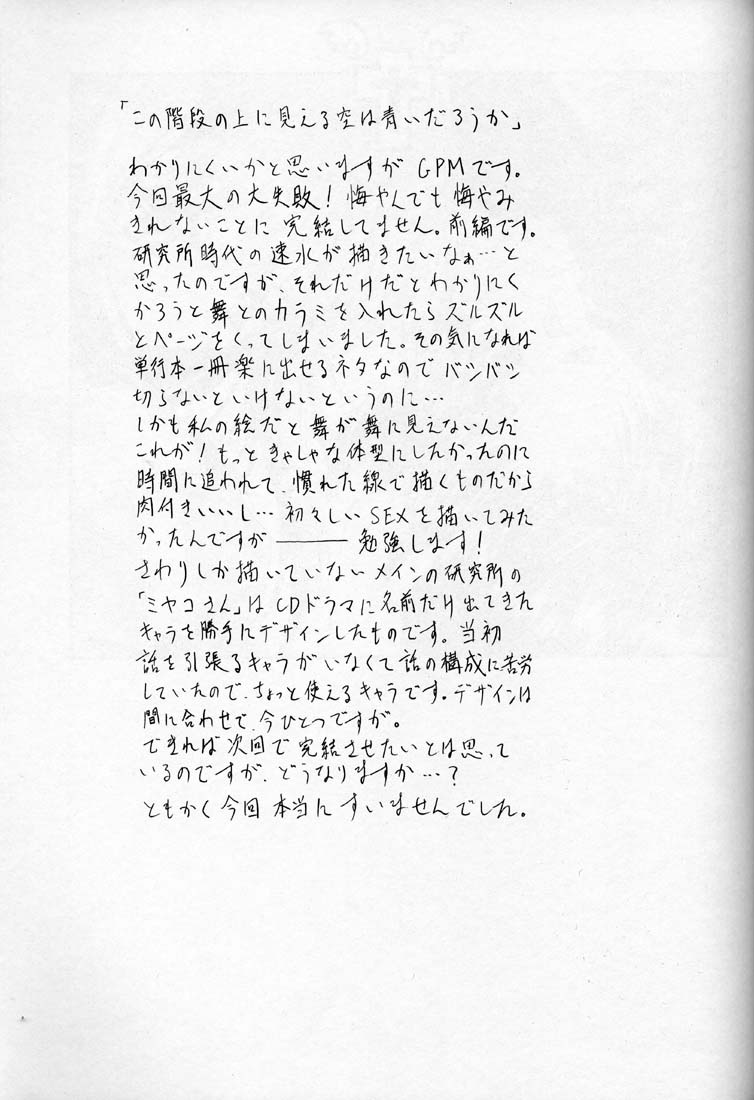 「この階段の上に見える空は青いだろうか」
わかりにくいかと思いますが GPMです。
今回最大の大失敗！悔やんでも悔やみ
きれないことに 完結してません。前編です。
研究所時代の速水が描きたいなぁ…と
思ったのですが、それだけだとわかりにく
かろうと舞とのカラミを入れたらズルズル
とページをくってしまいました。その気になれば
単行本一冊楽に出せるネタなのでバシバシ
切らないといけないというのに…
しかも私の絵だと舞が舞に見えないんだ
これが！もっときゃしゃな体型にしたかったのに
時間に追われて、慣れた線で描くものだから
肉付きいいし… 初々しいSEXを描いてみた
かったんですが――― 勉強します！
さわりしか描いていないメインの研究所の
「ミヤコさん」はCDドラマに名前だけ出てきた
キャラを勝手にデザインしたものです。当初
話を引張るキャラがいなくて話の構成に苦労
していたので、ちょっと使えるキャラです。デザインは
間に合わせで、今ひとつですが。
できれば次回で完結させたいとは思って
いるのですが、どうなりますか…？
ともかく今回 本当に すいませんでした。